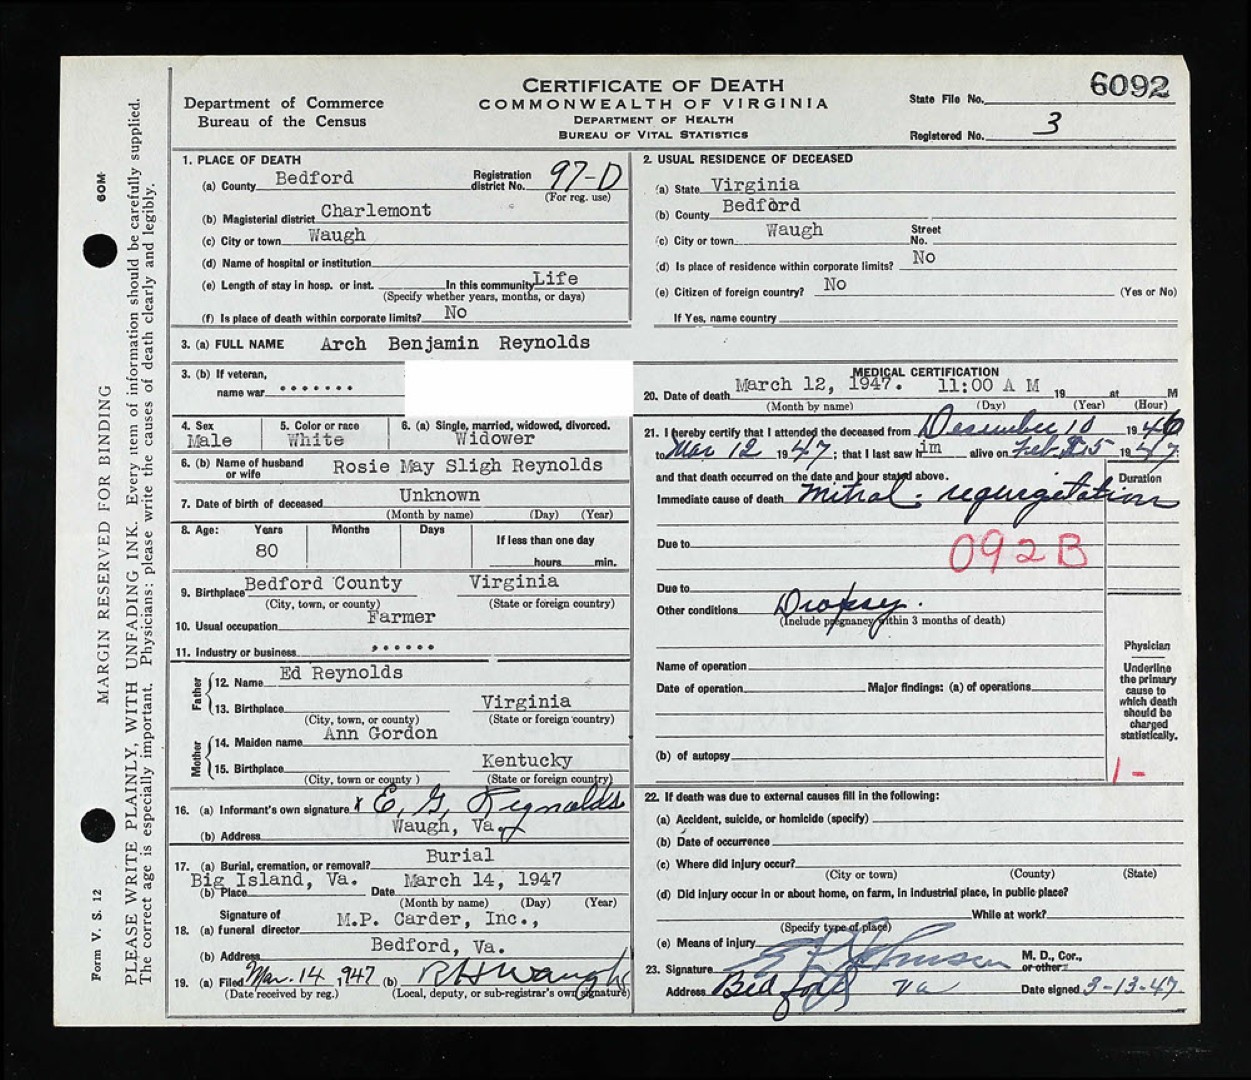 CERTIFICATE OF DEATH
COMMONWEALTH OF VIRGINIA
DEPARTMENT OF HEALTH
BUREAU OF VITAL STATISTICS
Department of Commerce
Bureau of the Census
6092
State File No.
Registered No. 3
1. PLACE OF DEATH
(a) County Bedford Registration district No. 97-D
(For reg. use)
(b) Magisterial district Charlemont
(c) City or town Waugh
(d) Name of hospital or institution
(e) Length of stay in hosp. or inst. In this community Life
(Specify whether years, months, or days)
(f) Is place of death within corporate limits? No
2. USUAL RESIDENCE OF DECEASED
(a) State Virginia
(b) County Bedford
(c) City or town Waugh Street No.
(d) Is place of residence within corporate limits? No
(e) Citizen of foreign country? No (Yes or No)
If Yes, name country
3. (a) FULL NAME Arch Benjamin Reynolds
3. (b) If veteran,
name war .......
4. Sex Male
5. Color or race White
6. (a) Single, married, widowed, divorced. Widower
6. (b) Name of husband or wife Rosie May Sligh Reynolds
7. Date of birth of deceased Unknown
(Month by name) (Day) (Year)
8. Age: Years Months Days If less than one day
80 hours min.
9. Birthplace Bedford County Virginia
(City, town, or county) (State or foreign country)
10. Usual occupation Farmer
11. Industry or business ......
Father
12. Name Ed Reynolds
13. Birthplace Virginia
(City, town, or county) (State or foreign country)
Mother
14. Maiden name Ann Gordon
15. Birthplace Kentucky
(City, town or county ) (State or foreign country)
16. (a) Informant's own signature x E. G. Reynolds
(b) Address Waugh, Va.
17. (a) Burial, cremation, or removal? Burial
Big Island, Va. March 14, 1947
(b) Place Date
(Month by name) (Day) (Year)
18. (a) Signature of funeral director M.P. Carder, Inc.,
(b) Address Bedford, Va.
19. (a) Filed Mar. 14 1947 (b) R H Waugh
(Date received by reg.) (Local, deputy, or sub-registrar's own signature)
MEDICAL CERTIFICATION
20. Date of death March 12, 1947. 11:00 A M 19 at M
(Month by name) (Day) (Year) (Hour)
21. I hereby certify that I attended the deceased from Desember 10 1946
to Mar 12 1947; that I last saw him alive on Feb 15 1947
and that death occurred on the date and hour stated above. Duration
Immediate cause of death Mitral regurgetation
Due to
092B
Due to
Other conditions Dropsy.
(Include pregnancy within 3 months of death)
Name of operation
Date of operation Major findings: (a) of operations
(b) of autopsy
Physician
Underline the primary cause to which death should be charged statistically.
1-
22. If death was due to external causes fill in the following:
(a) Accident, suicide, or homicide (specify)
(b) Date of occurrence
(c) Where did injury occur?
(City or town) (County) (State)
(d) Did injury occur in or about home, on farm, in industrial place, in public place?
While at work?
(Specify type of place)
(e) Means of injury
23. Signature Johnson M. D., Cor., or other
Address Bedford Va Date signed 3-13-47
60M
MARGIN RESERVED FOR BINDING
Form V. S. 12
PLEASE WRITE PLAINLY, WITH UNFADING INK. Every item of information should be carefully supplied.
The correct age is especially important. Physicians: please write the causes of death clearly and legibly.